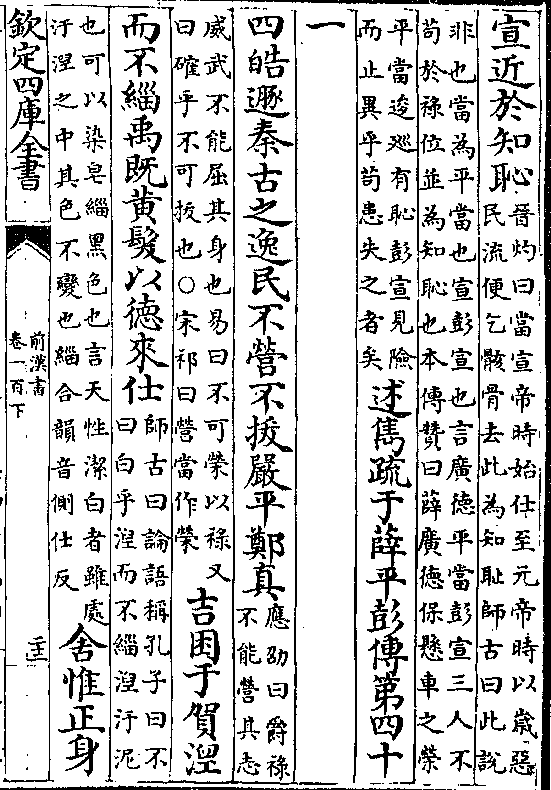 宣近於知恥晉灼曰當宣帝時始仕至元帝時以歲惡民流便乞骸骨去此為知恥師古曰此說
非也當為平當也宣彭宣也言廣德平當彭宣三人不苟於祿位並為知恥也本傳贊曰薛廣德保懸車之榮
平當逡廵有恥彭宣見險而止異乎苟患失之者矣述雋疏于薛平彭傳第四十
一
四皓遯秦古之逸民不營不拔嚴平鄭真應劭曰爵祿不能營其志
威武不能屈其身也易曰不可榮以祿又曰確乎不可拔也○宋祁曰營當作榮吉困于賀湼
而不緇禹既黄髮以德來仕師古曰論語稱孔子曰不曰白乎湼而不緇湼汙泥
也可以染皂緇黑色也言天性潔白者雖處汙湼之中其色不變也緇合韻音側仕反舍惟正身
欽定四庫全書
前漢書
卷一百下
二十一